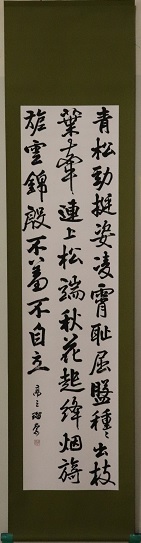 青松勁挺姿凌霄恥屈盤種々出枝
葉牽連上松端秋花起絳烟旖
旎雲錦殷不羞不自立